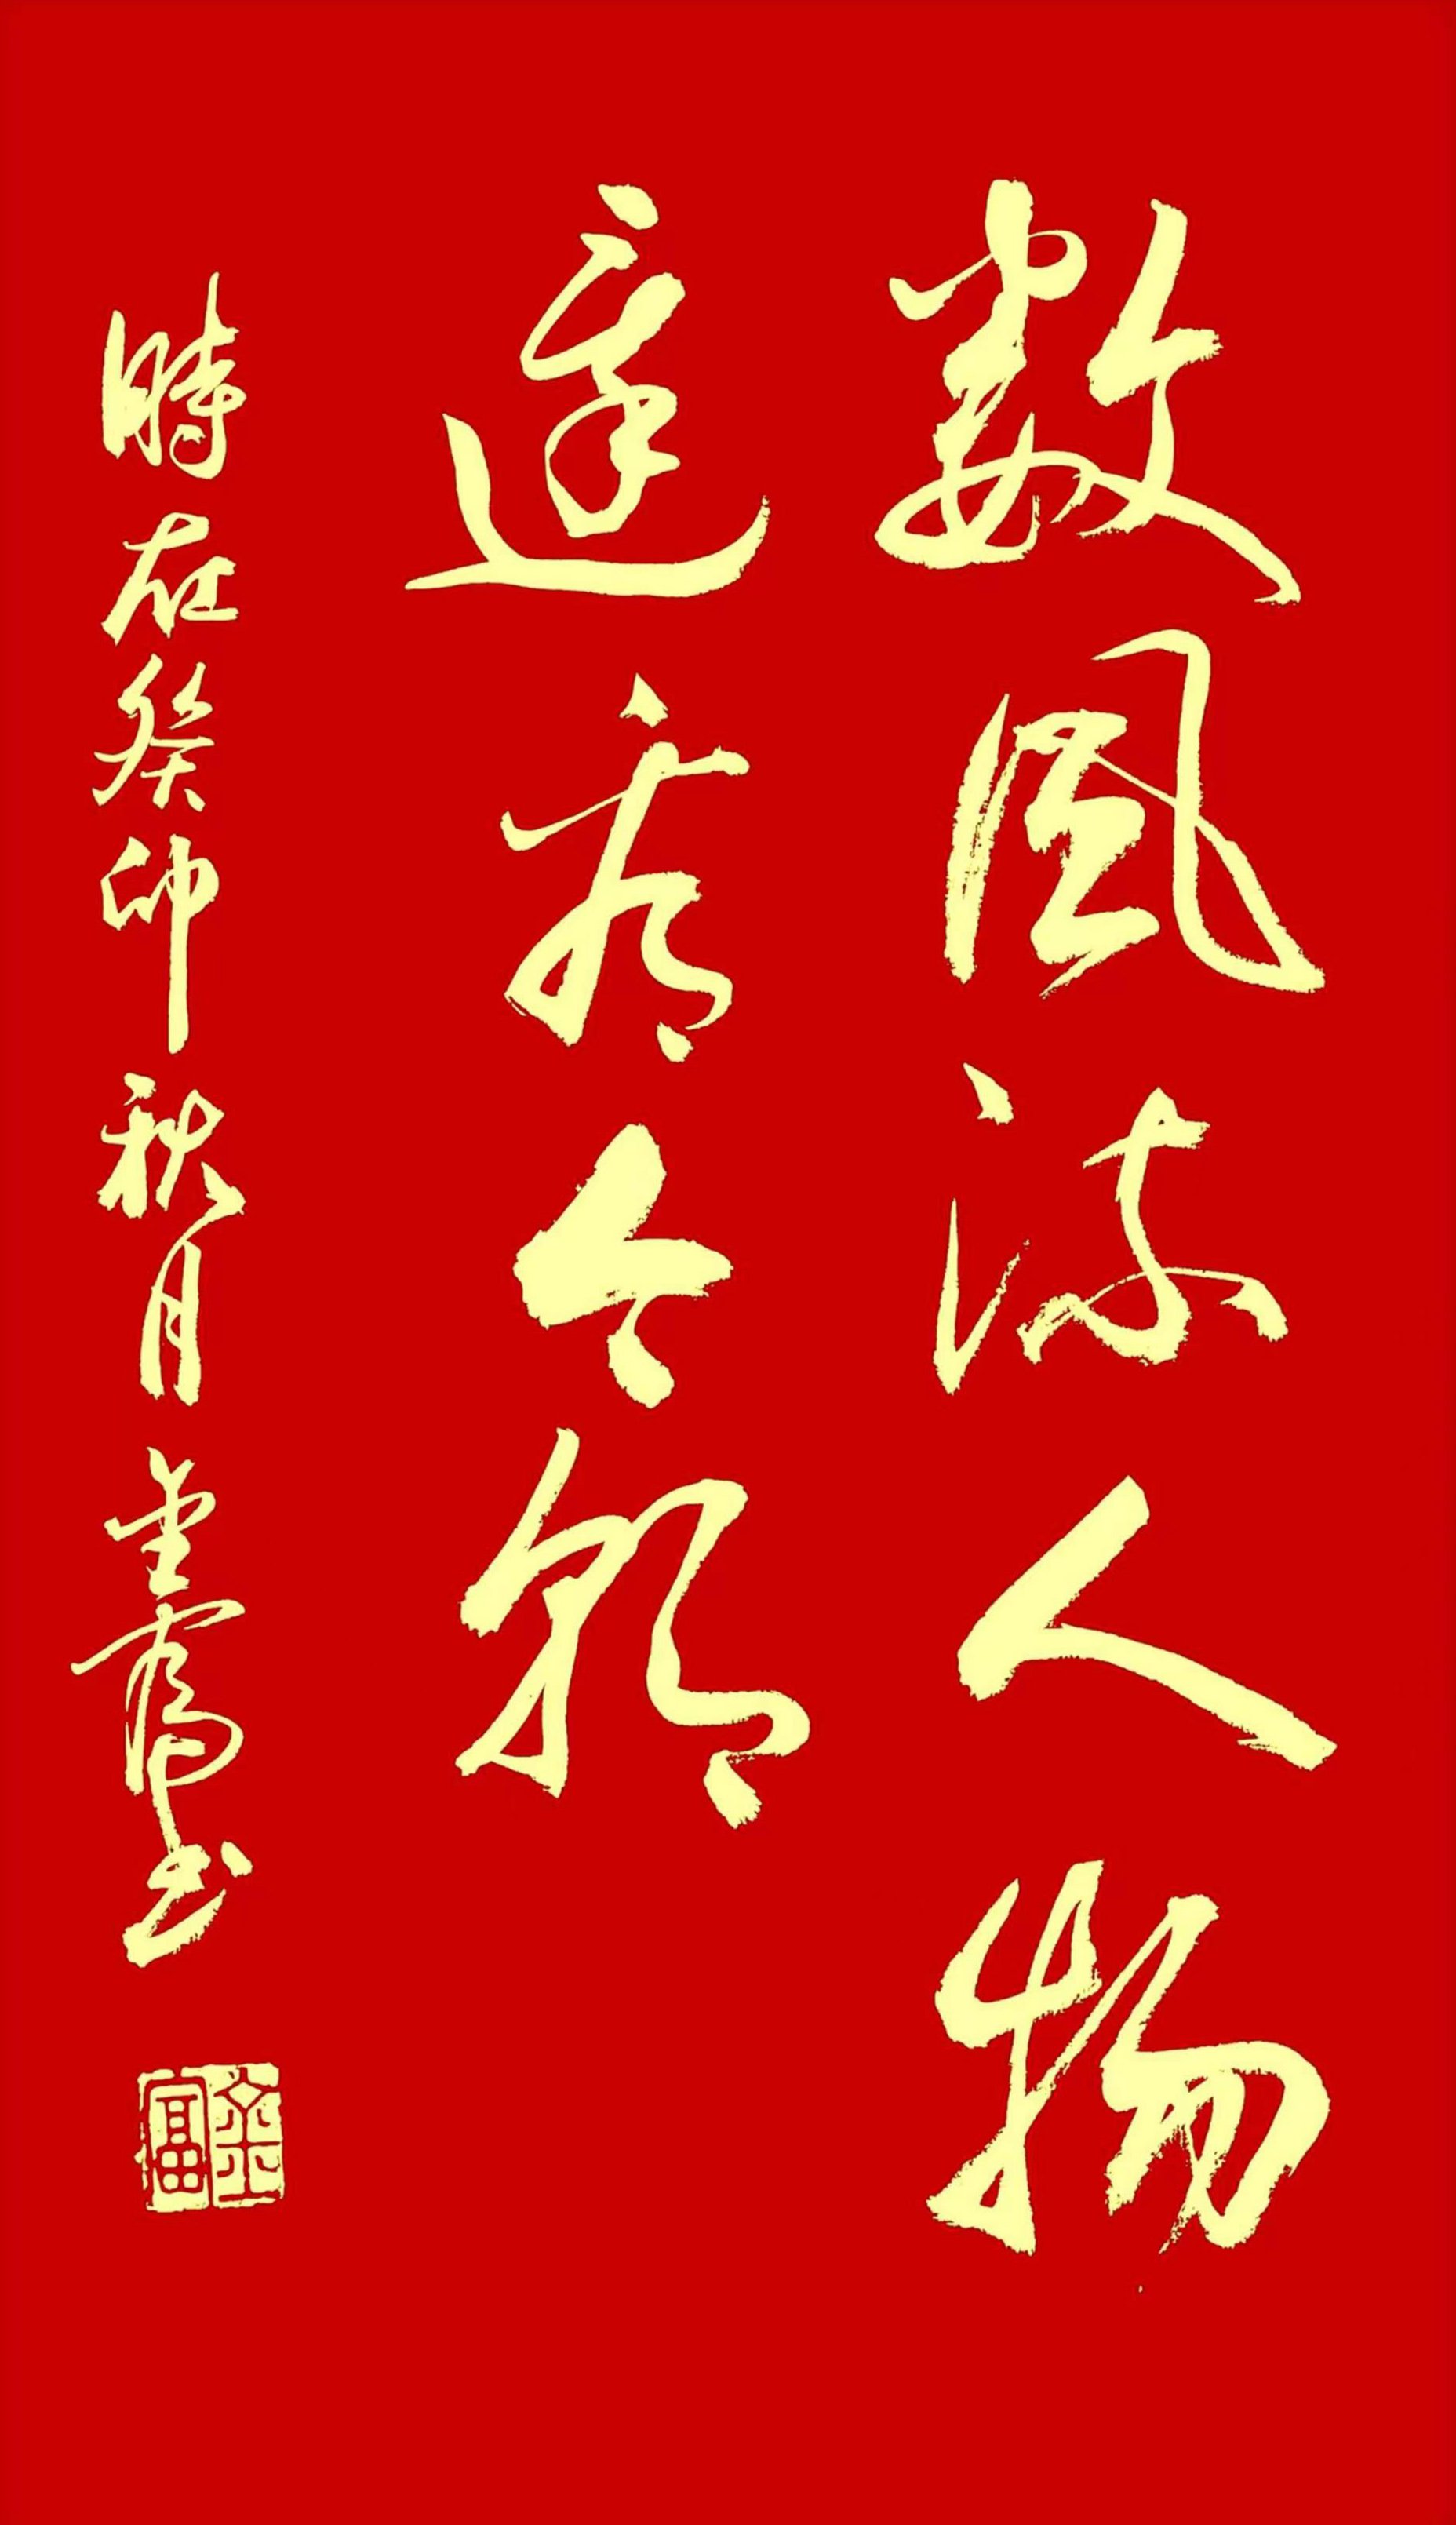 數風流人物
還看今朝
時在癸卯秋月金富書
金富